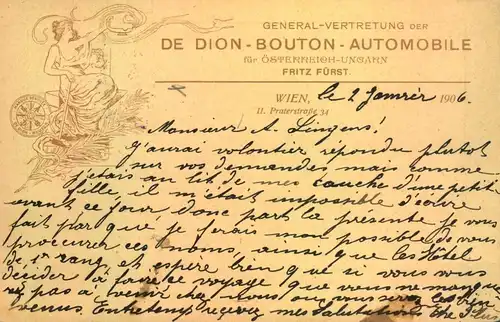 GENERAL-VERTRETUNG DER
DE DION-BOUTON-AUTOMOBILE
für ÖSTERREICH-UNGARN
FRITZ FÜRST.
WIEN, le 2 Janvier 1906.
II. Praterstraße 34
Monsieur A. Lingens!
J'aurai volontier répondu plutot
sur vos demandes mais comme
j'etais au lit de mes couche d'une petit
fille, il m'était impossible d'écrire
avant ce jour, donc part la présente je vous
fait par que je ferais mon possible de vous
procurer ces noms, ainsi que les Hôtel
de 1er rang, et espère bien que si vous vous
décider à faire ce voyage que vous ne manque
rez pas à venir chez nous ou vous serez les bien
venus. Entretemps recevez mes salutations